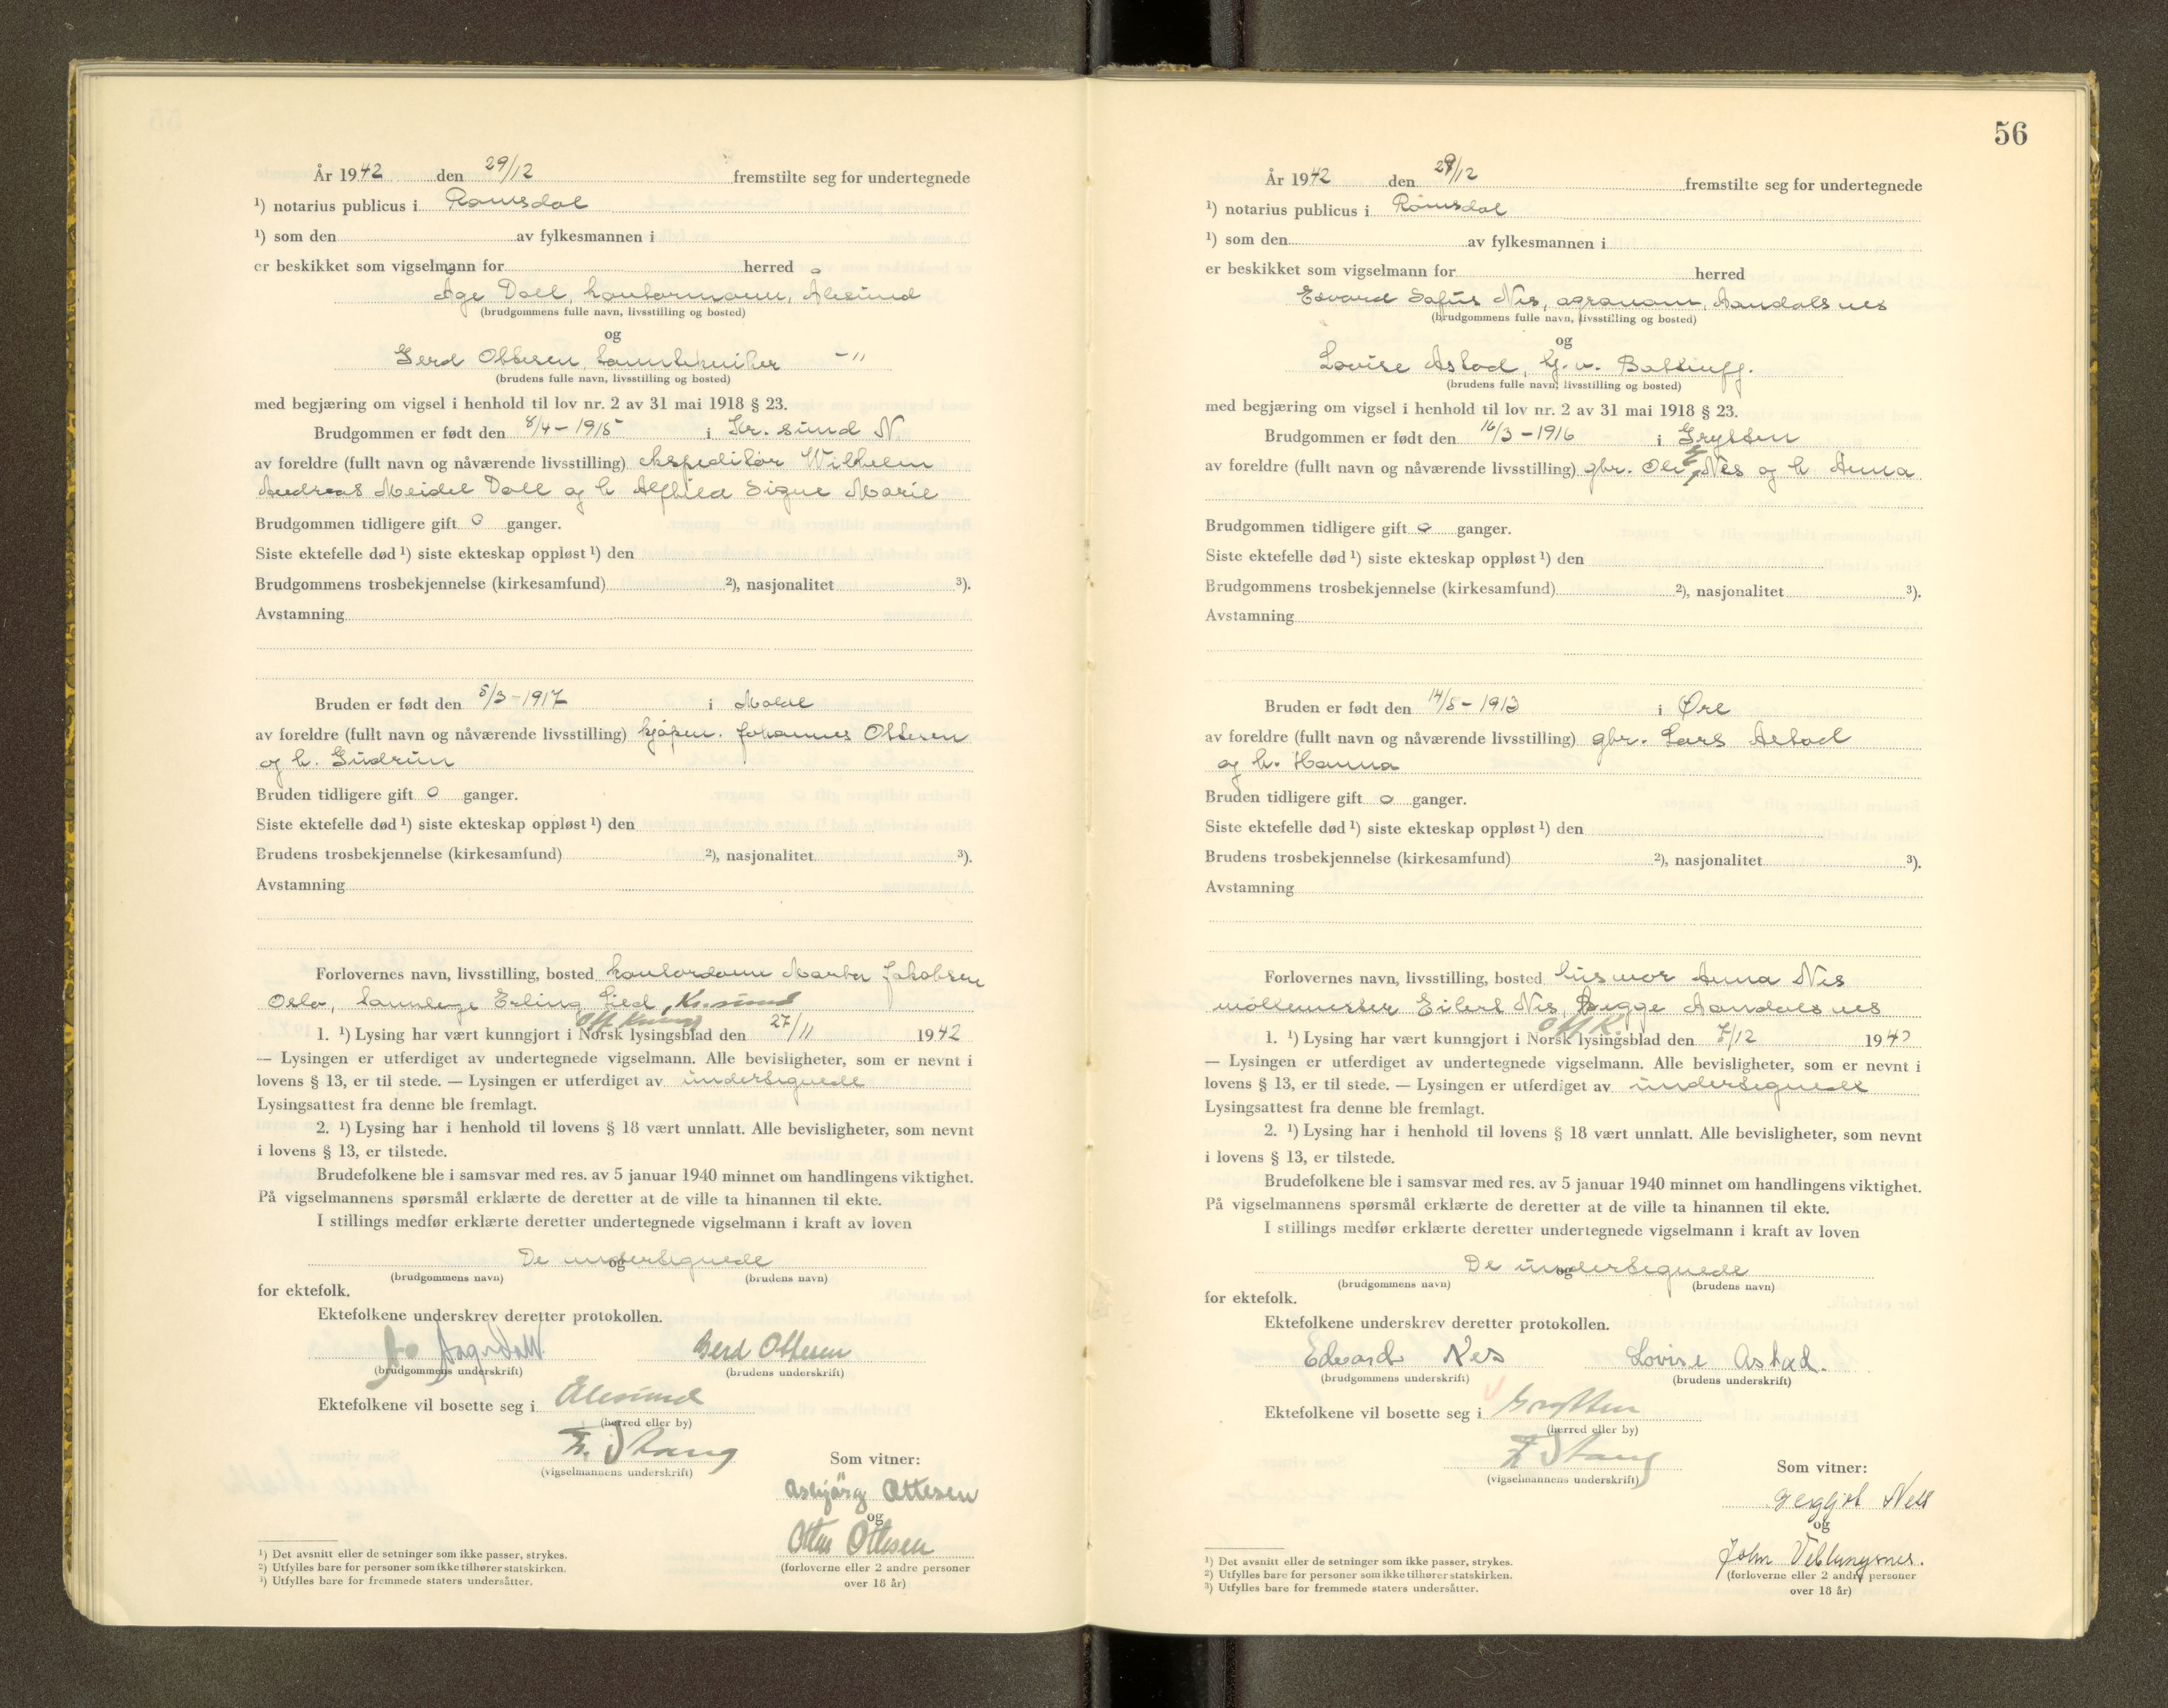 År 1942 den 29/12 fremstilte seg for undertegnede
¹) notarius publicus i Romsdal
¹) som den av fylkesmannen i
er beskikket som vigselmann for herred
Åge Dall, kontormann, Ålesund
(brudgommens fulle navn, livsstilling og bosted)
og
Gerd Ottesen, tanntekniker -"
(brudens fulle navn, livsstilling og bosted)
med begjæring om vigsel i henhold til lov nr. 2 av 31 mai 1918 § 23.
Brudgommen er født den 8/4-1915 i Kr.sund N.
av foreldre (fullt navn og nåværende livsstilling) ekspeditør Wilhelm
Andreas Meidel Dall og h. Alfhild Signe Marie
Brudgommen tidligere gift 0 ganger.
Siste ektefelle død ¹) siste ekteskap oppløst ¹) den
Brudgommens trosbekjennelse (kirkesamfund) ²), nasjonalitet ³).
Avstamning
Bruden er født den 5/3-1917 i Molde
av foreldre (fullt navn og nåværende livsstilling) kjøpm. Johannes Ottesen
og h. Gudrun
Bruden tidligere gift 0 ganger.
Siste ektefelle død ¹) siste ekteskap oppløst ¹) den
Brudens trosbekjennelse (kirkesamfund) ²), nasjonalitet ³).
Avstamning
Forlovernes navn, livsstilling, bosted kontordame Jakobsen
Oslo, tannlege Erling Lied, Kr.sund
Off Kunng
1. ¹) Lysing har vært kunngjort i Norsk lysingsblad den 27/11 1942
— Lysingen er utferdiget av undertegnede vigselmann. Alle bevisligheter, som er nevnt i
lovens § 13, er til stede. — Lysingen er utferdiget av undertegnede
Lysingsattest fra denne ble fremlagt.
2. ¹) Lysing har i henhold til lovens § 18 vært unnlatt. Alle bevisligheter, som nevnt
i lovens § 13, er tilstede.
Brudefolkene ble i samsvar med res. av 5 januar 1940 minnet om handlingens viktighet.
På vigselmannens spørsmål erklærte de deretter at de ville ta hinannen til ekte.
I stillings medfør erklærte deretter undertegnede vigselmann i kraft av loven
De undertegnede
og
(brudgommens navn) (brudens navn)
for ektefolk.
Ektefolkene underskrev deretter protokollen.
Aage Dall Gerd Ottesen
(brudgommens underskrift) (brudens underskrift)
Ektefolkene vil bosette seg i Ålesund
(herred eller by)
Stang
(vigselmannens underskrift)
Som vitner:
Asbjørg Ottesen
og
Ottesen
(forloverne eller 2 andre personer
over 18 år)
¹) Det avsnitt eller de setninger som ikke passer, strykes.
²) Utfylles bare for personer som ikke tilhører statskirken.
³) Utfylles bare for fremmede staters undersåtter.
56
År 1942 den 29/12 fremstilte seg for undertegnede
¹) notarius publicus i Romsdal
¹) som den av fylkesmannen i
er beskikket som vigselmann for herred
Edvard Sofus Nes, agronom, Aandalsnes
(brudgommens fulle navn, livsstilling og bosted)
og
Lovise Astad,
(brudens fulle navn, livsstilling og bosted)
med begjæring om vigsel i henhold til lov nr. 2 av 31 mai 1918 § 23.
Brudgommen er født den 16/3-1916 i Grytten
av foreldre (fullt navn og nåværende livsstilling) gbr. Ole Nes og h. Anna
Brudgommen tidligere gift 0 ganger.
Siste ektefelle død ¹) siste ekteskap oppløst ¹) den
Brudgommens trosbekjennelse (kirkesamfund) ²), nasjonalitet ³).
Avstamning
Bruden er født den 14/5-1913 i Øre
av foreldre (fullt navn og nåværende livsstilling) gbr. Lars Astad
og h. Hanna
Bruden tidligere gift 0 ganger.
Siste ektefelle død ¹) siste ekteskap oppløst ¹) den
Brudens trosbekjennelse (kirkesamfund) ²), nasjonalitet ³).
Avstamning
Forlovernes navn, livsstilling, bosted husmor Anna Nes
møllemester Eilert Nes, begge Aandalsnes
Off K.
1. ¹) Lysing har vært kunngjort i Norsk lysingsblad den 7/12 1942
— Lysingen er utferdiget av undertegnede vigselmann. Alle bevisligheter, som er nevnt i
lovens § 13, er til stede. — Lysingen er utferdiget av undertegnede
Lysingsattest fra denne ble fremlagt.
2. ¹) Lysing har i henhold til lovens § 18 vært unnlatt. Alle bevisligheter, som nevnt
i lovens § 13, er tilstede.
Brudefolkene ble i samsvar med res. av 5 januar 1940 minnet om handlingens viktighet.
På vigselmannens spørsmål erklærte de deretter at de ville ta hinannen til ekte.
I stillings medfør erklærte deretter undertegnede vigselmann i kraft av loven
De undertegnede
og
(brudgommens navn) (brudens navn)
for ektefolk.
Ektefolkene underskrev deretter protokollen.
Edvard Nes Lovise Astad.
(brudgommens underskrift) (brudens underskrift)
Ektefolkene vil bosette seg i Grytten
(herred eller by)
Stang
(vigselmannens underskrift)
Som vitner:
Nes
og
John Veblungsnes.
(forloverne eller 2 andre personer
over 18 år)
¹) Det avsnitt eller de setninger som ikke passer, strykes.
²) Utfylles bare for personer som ikke tilhører statskirken.
³) Utfylles bare for fremmede staters undersåtter.